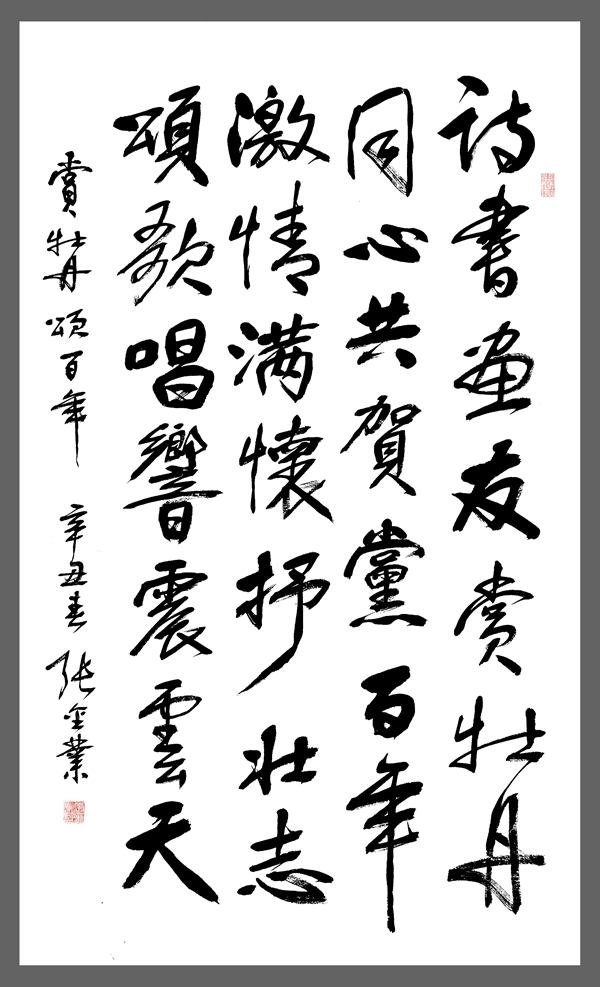 詩書畫友赏牡丹
同心共賀黨百年
激情满懷抒壮志
頌歌唱響震雲天
赏牡丹頌百年 辛丑春 张金業